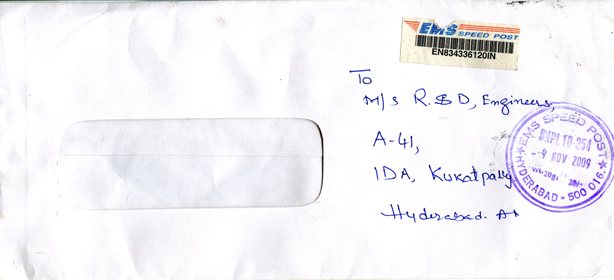 EMS SPEED POST
EN834336120IN
To
M/s R.BD, Engineers,
A-41,
IDA, Kukatpally
Hyderabad. A
★ EMS SPEED POST ★
BNPL TO-354
-9 NOV 2009
HYDERABAD - 500 016.